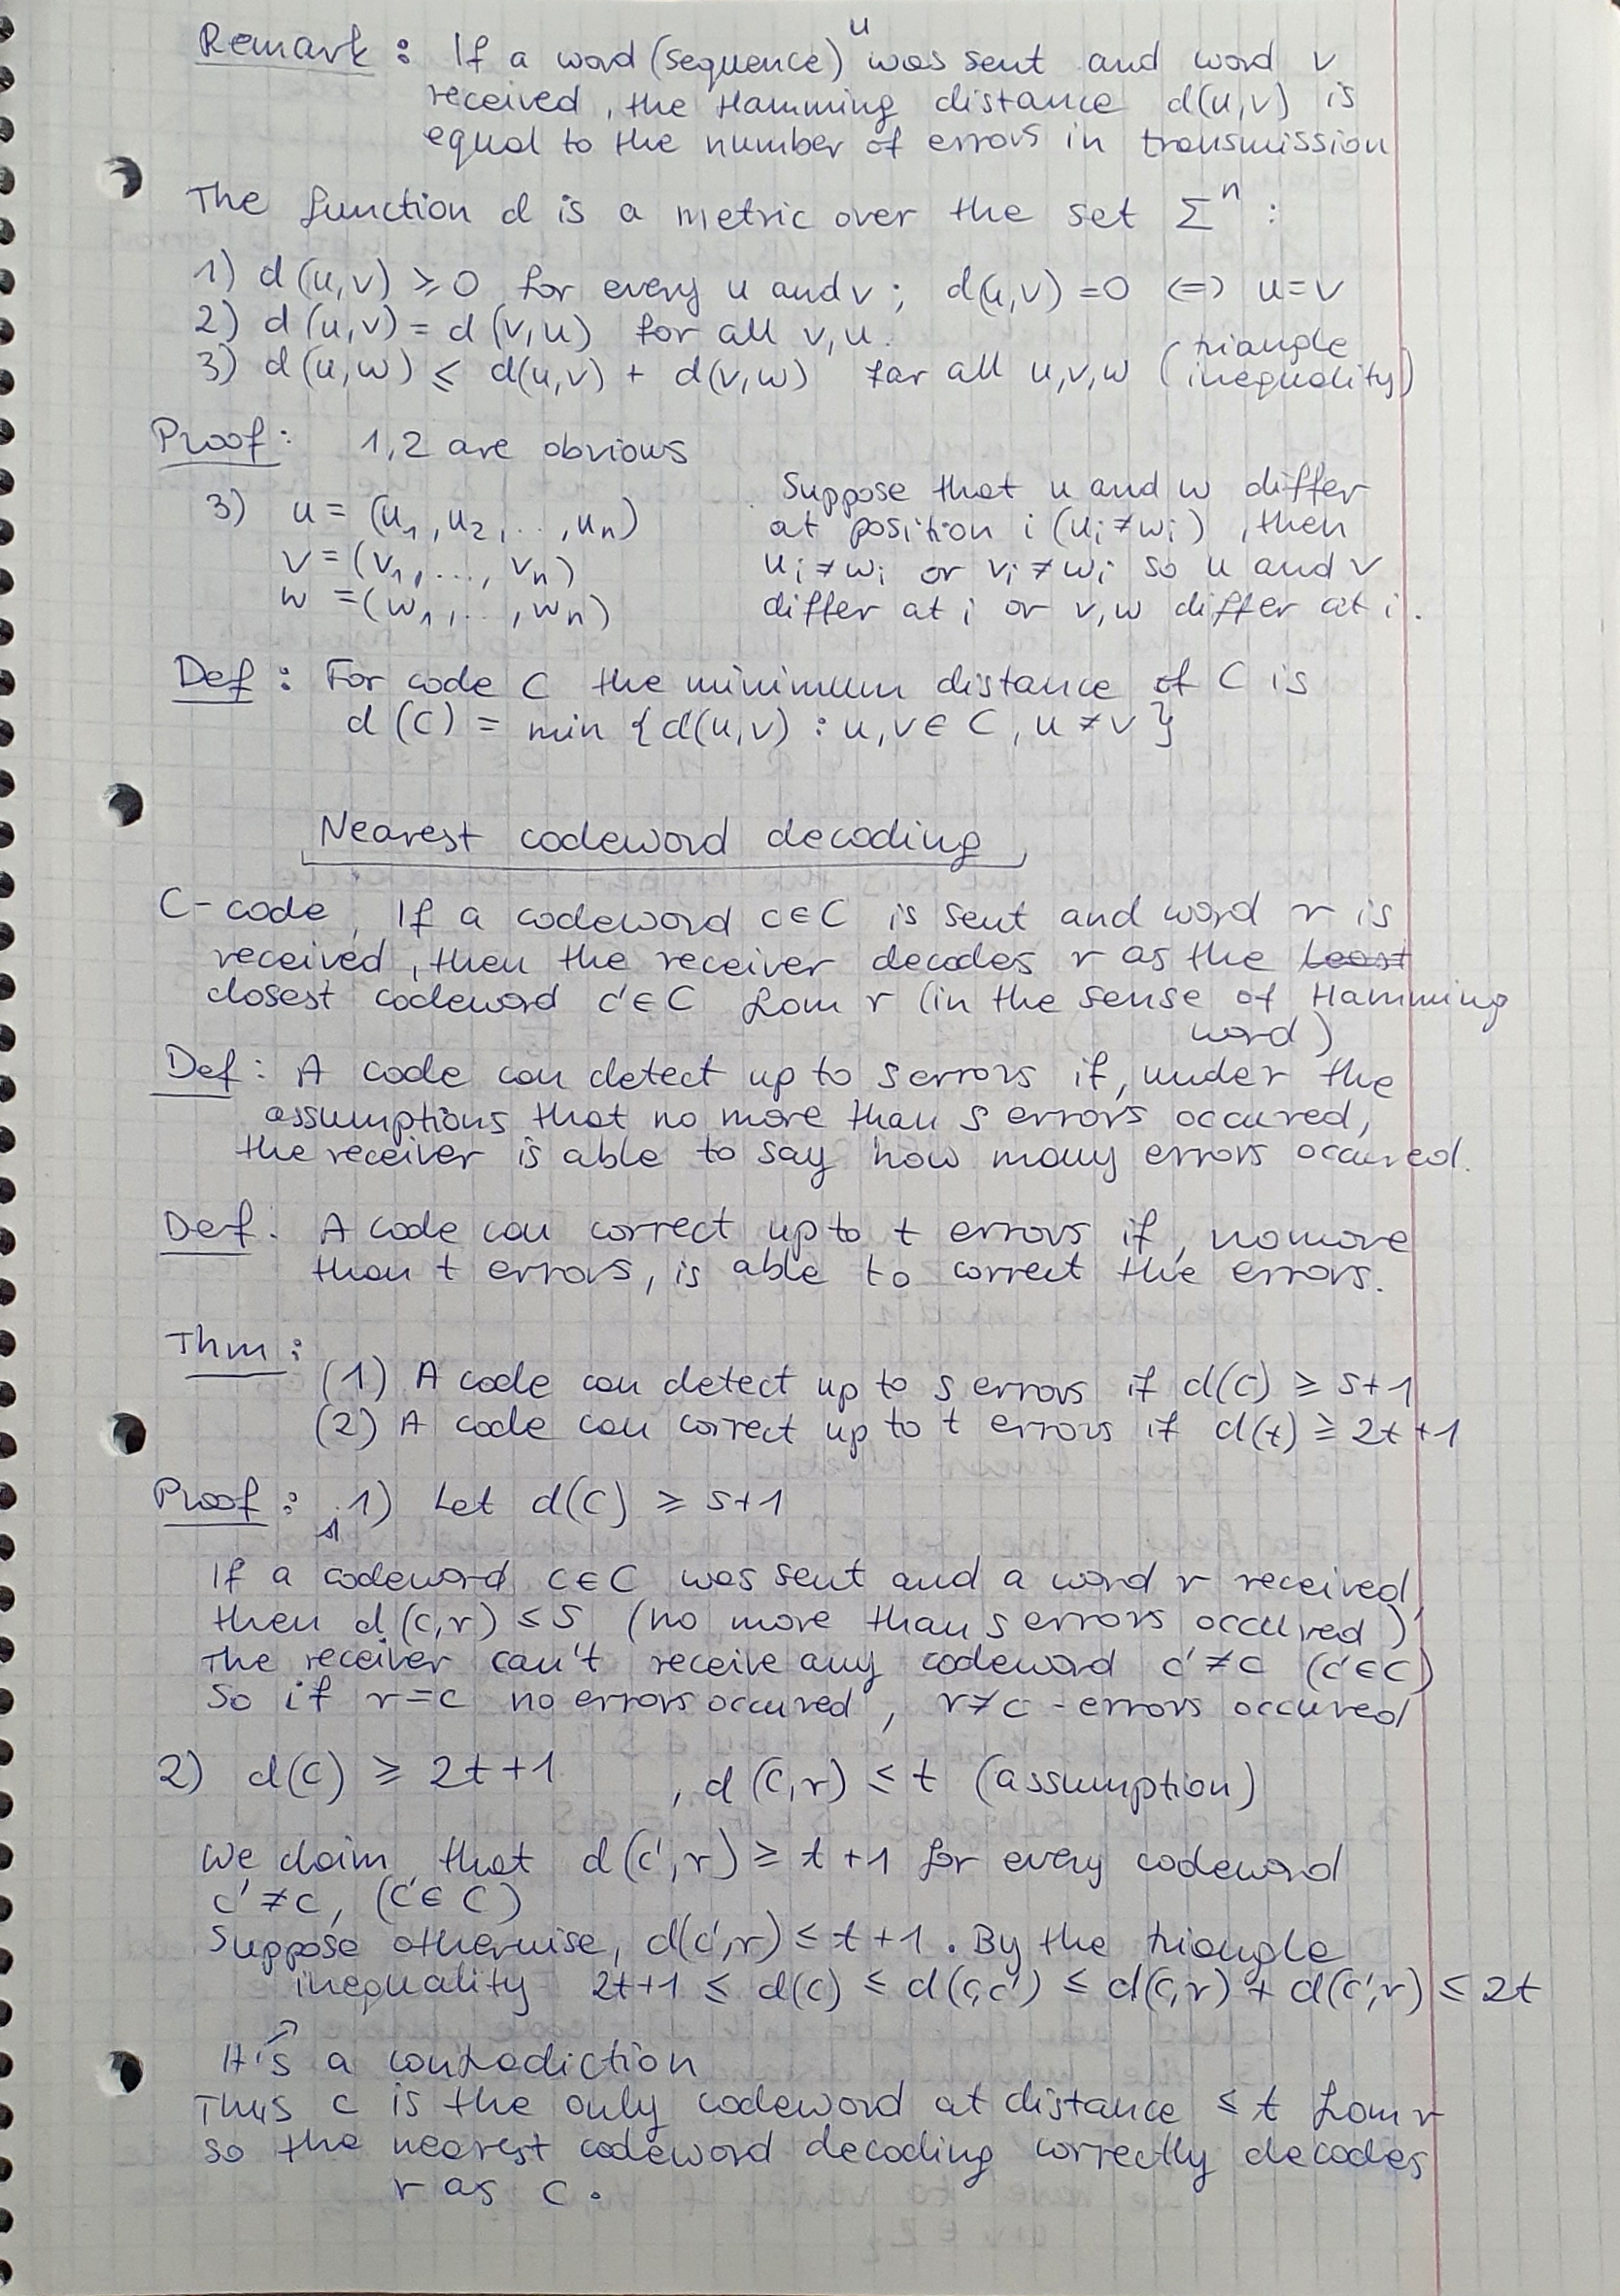 Remark : If a word (sequence) u was sent and word v
received, the Hamming distance d(u,v) is
equal to the number of errors in transmission
The function d is a metric over the set Σⁿ :
1) d(u,v) ⩾ 0 for every u and v ; d(u,v) = 0 <=> u=v
2) d(u,v) = d(v,u) for all v,u.
3) d(u,w) ⩽ d(u,v) + d(v,w) for all u,v,w (triangle inequality)
Proof : 1,2 are obvious
3) u = (u₁,u₂,...,uₙ)
v = (v₁,...,vₙ)
w = (w₁,...,wₙ)
Suppose that u and w differ
at position i (uᵢ≠wᵢ), then
uᵢ≠wᵢ or vᵢ≠wᵢ so u and v
differ at i or v,w differ at i.
Def : For code C the minimum distance of C is
d(C) = min {d(u,v) : u,v∈C, u≠v}
Nearest codeword decoding
C- code, If a codeword c∈C is sent and word r is
received, then the receiver decodes r as the least
closest codeword c'∈C from r (in the sense of Hamming
word)
Def : A code can detect up to s errors if, under the
assumptions that no more than s errors occured,
the receiver is able to say how many errors occured.
Def : A code can correct up to t errors if, no more
than t errors, is able to correct the errors.
Thm :
(1) A code can detect up to s errors if d(C) ⩾ s+1
(2) A code can correct up to t errors if d(t) ⩾ 2t+1
Proof : 1) Let d(C) ⩾ s+1
If a codeword c∈C was sent and a word r received,
then d(c,r) ⩽ s (no more than s errors occured)
The receiver can't receive any codeword c'≠c (c'∈C)
So if r=c no errors occured, r≠c - errors occured
2) d(C) ⩾ 2t+1 , d(c,r) ⩽ t (assumption)
We claim that d(c',r) ⩾ t+1 for every codeword
c'≠c, (c'∈C)
Suppose otherwise, d(c',r) ⩽ t+1. By the triangle
inequality 2t+1 ⩽ d(C) ⩽ d(c,c') ⩽ d(c,r) + d(c',r) ⩽ 2t
It's a contradiction
Thus c is the only codeword at distance ⩽ t from r
so the nearest codeword decoding correctly decodes
r as c.